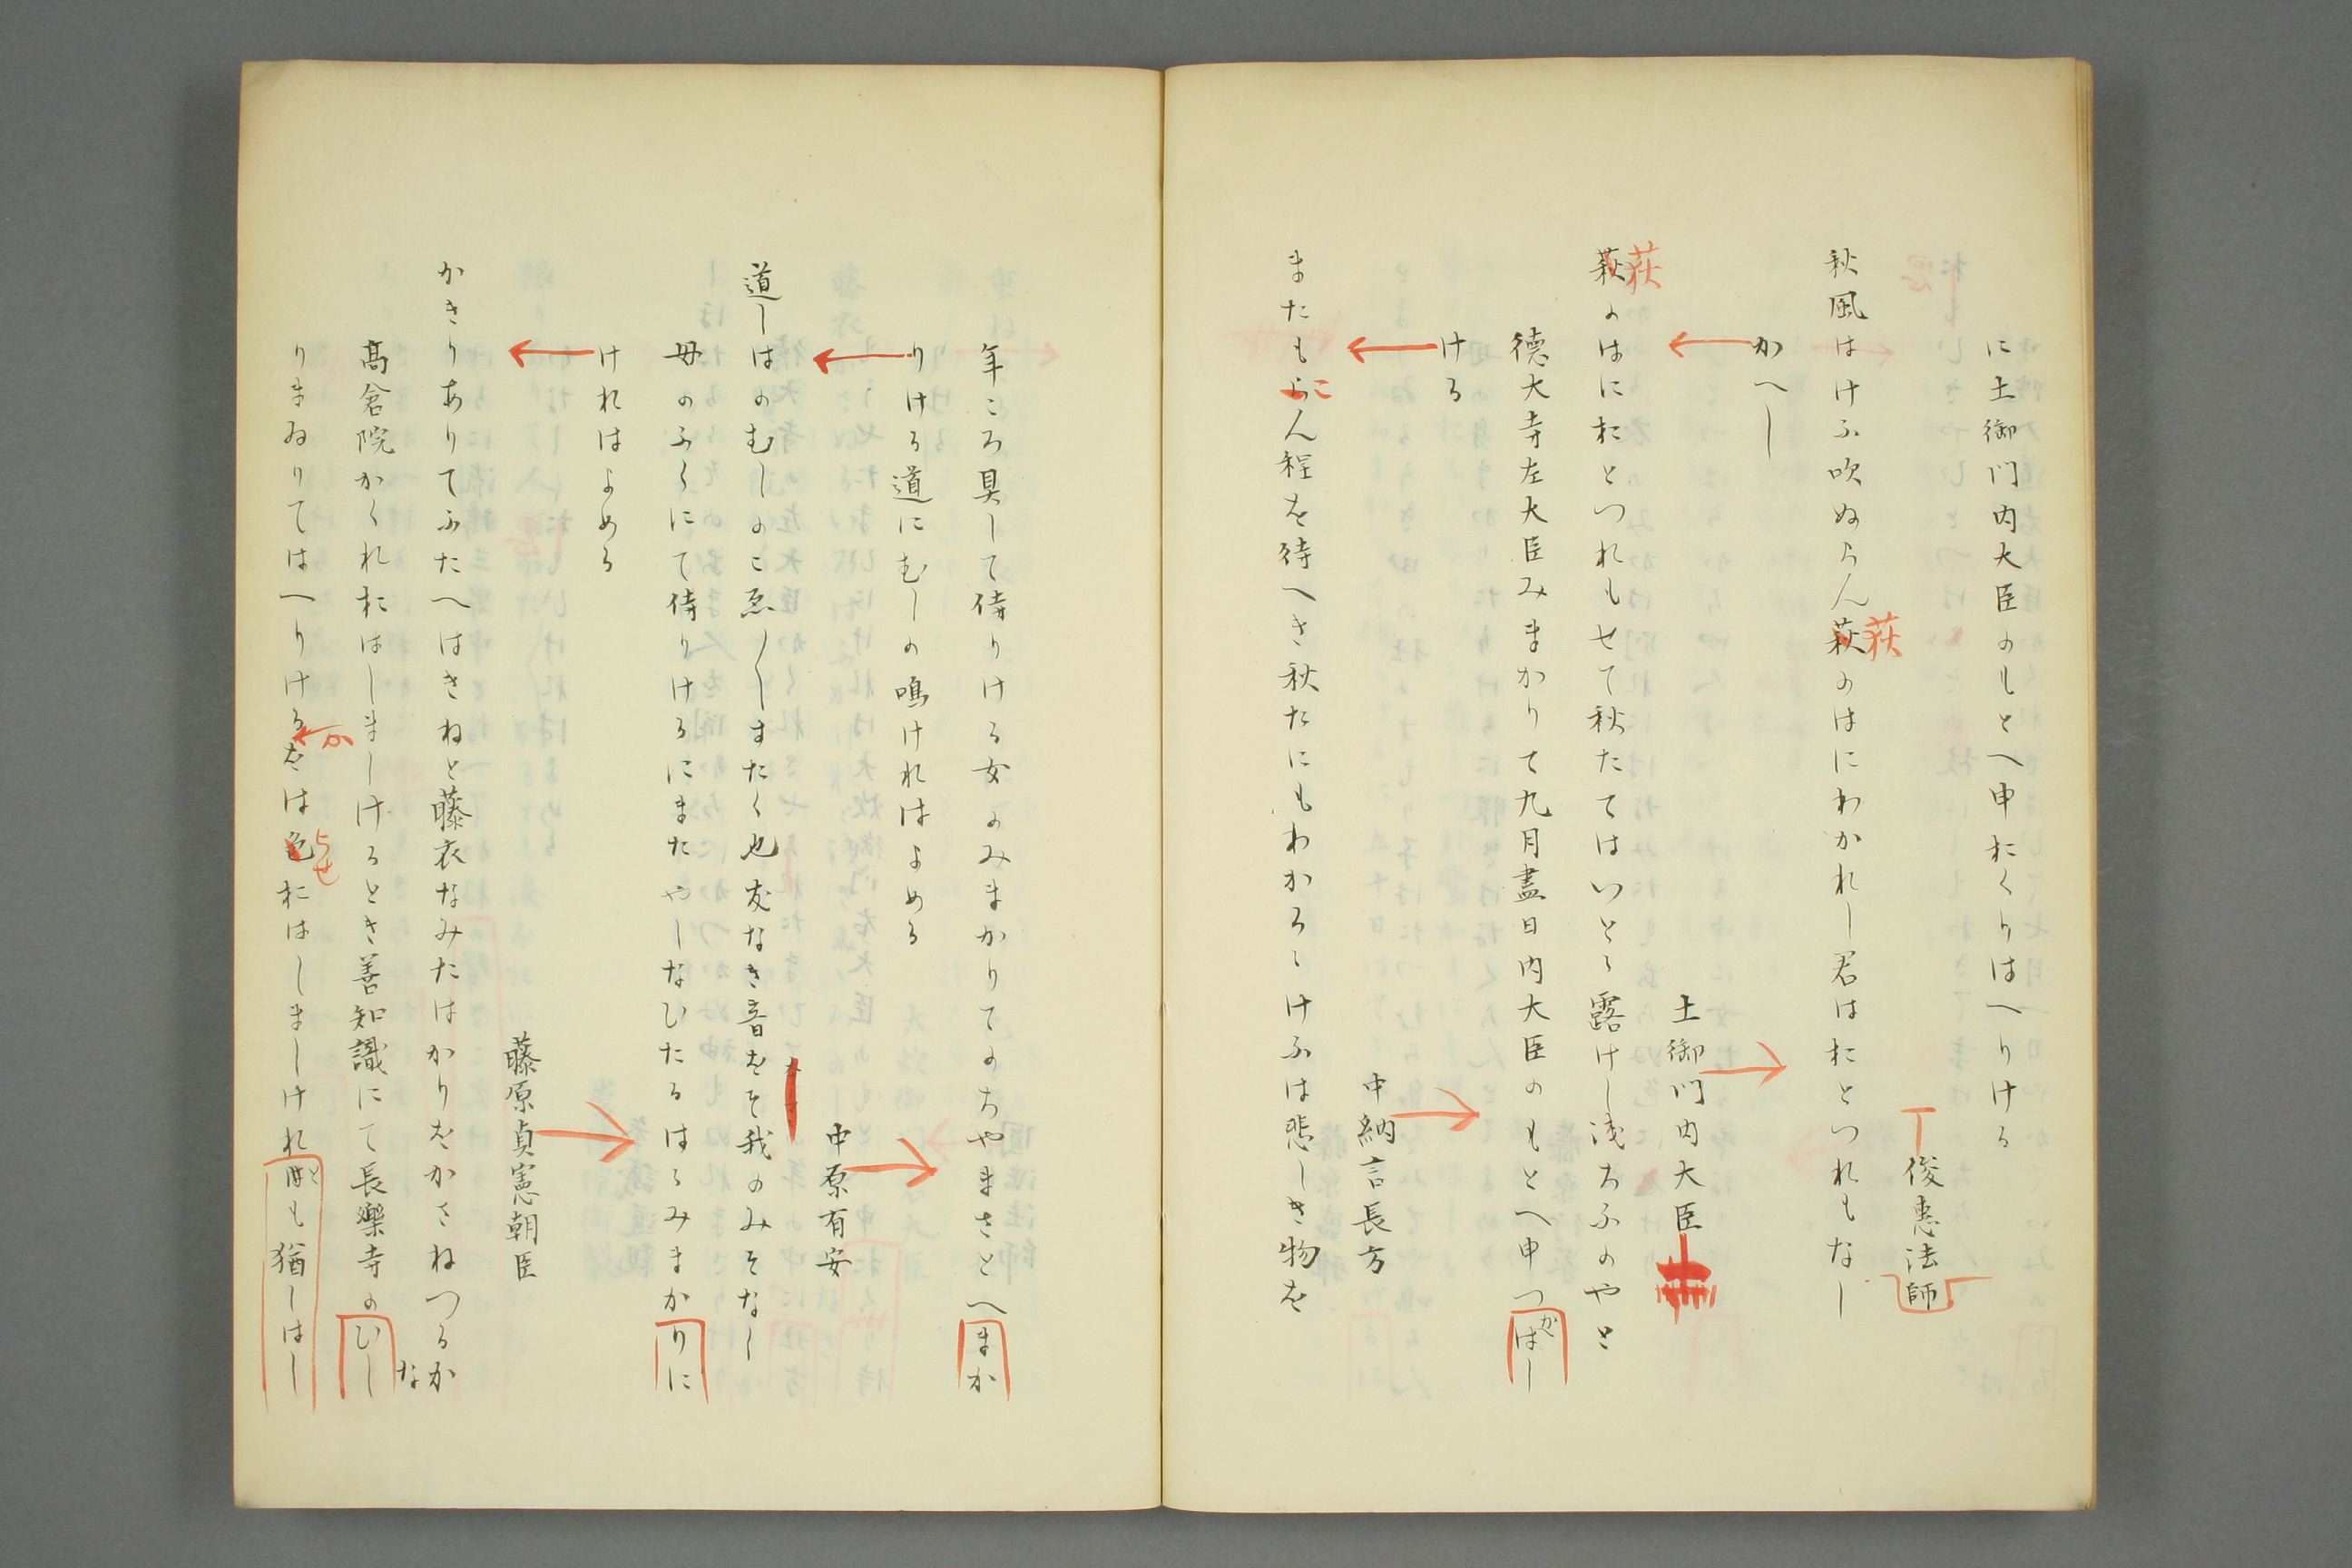 に土御門内大臣のもとへ申おくりはへりける
俊恵法師
秋風はけふ吹ぬらん萩のはにわかれし君はおとつれもなし
荻
かへし
土御門内大臣
萩のはにおとつれもせて秋たてはいとゝ露けし浅ちふのやと
荻
徳大寺左大臣みまかりて九月盡日内大臣のもとへ申つはし
かは
ける
中納言長方
またもらん程を待へき秋たにもわかるゝけふは悲しき物を
こ
年ころ具して侍りける女のみまかりてのちやまさとへまか
りける道にむしの鳴けれはよめる
中原有安
道しはのむしのこゑ〳〵しまたく也友なき音をそ我のみそなし
母のふくにて侍りけるにまたやしなひたるはゝみまかりに
けれはよめる
藤原貞憲朝臣
かきりありてふたへはきねと藤衣なみたはかりをかさねつるかな
髙倉院かくれおはしましけるとき善知識にて長樂寺のひし
りまゐりてはへりけるをは色おはしましけれ時も猶しはし
か
らせ
と